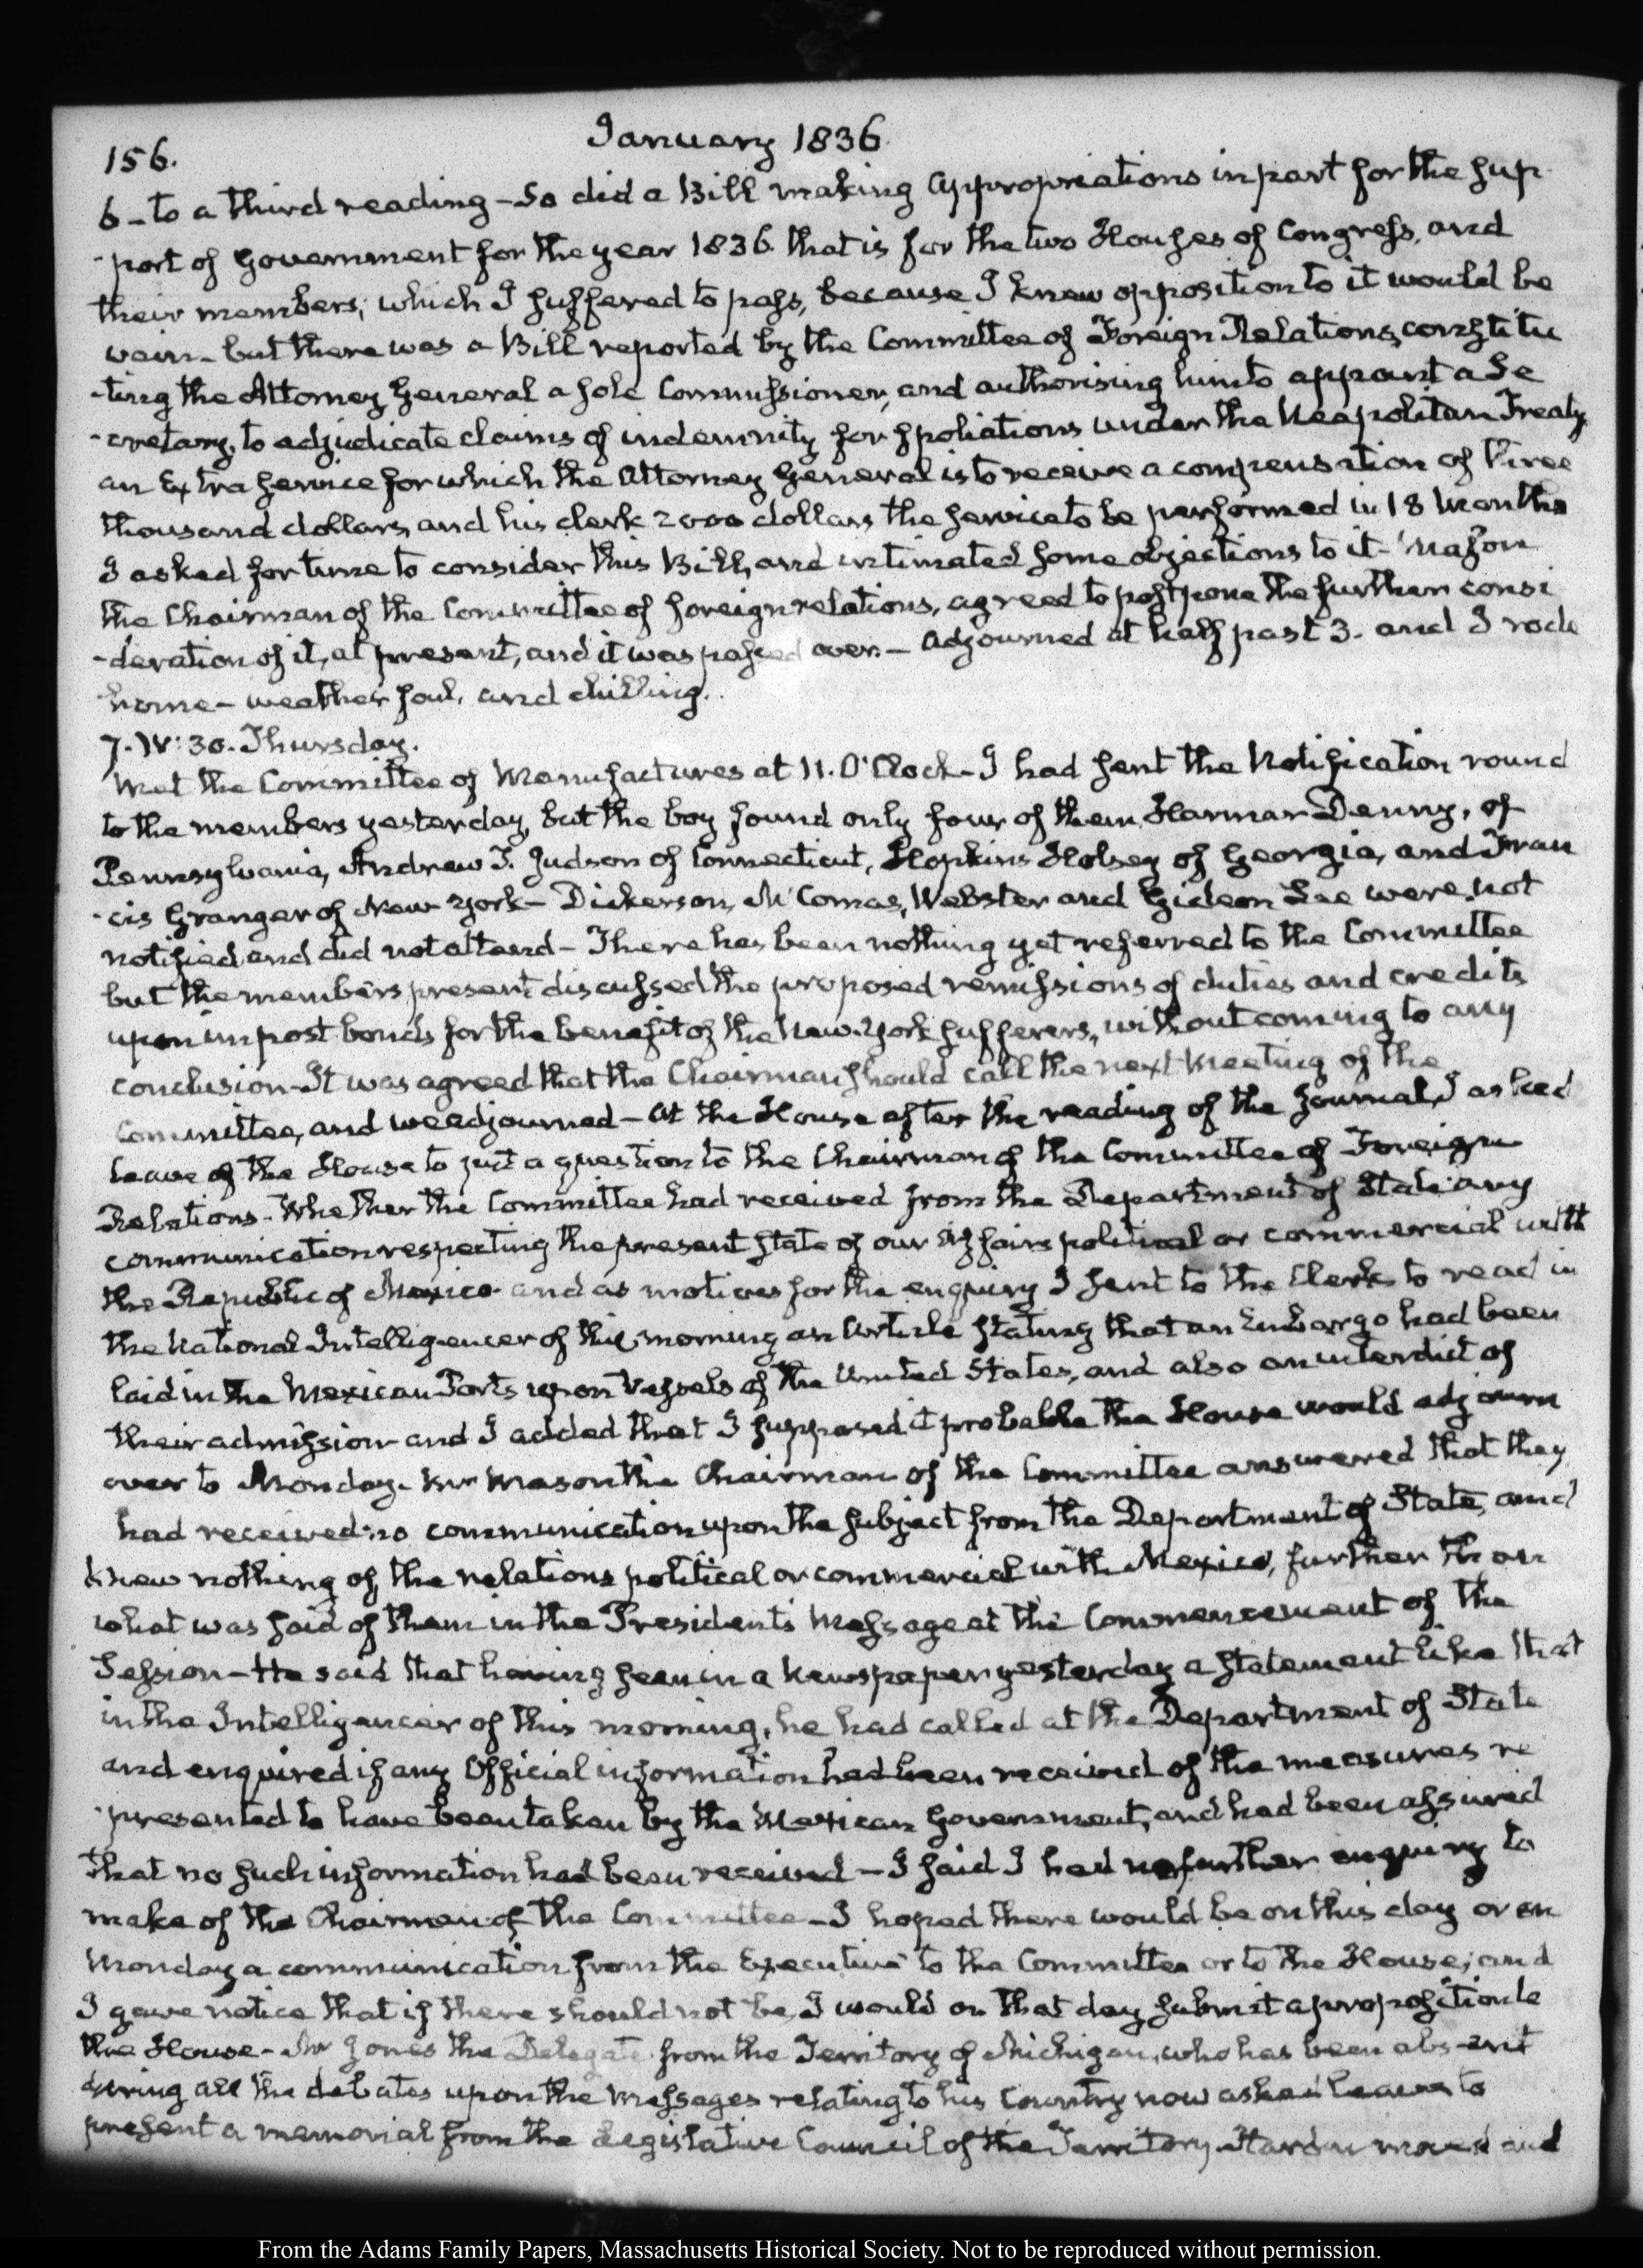 156.
January 1836
6 - to a third reading - So did a Bill making appropriations in part for the sup
-port of Government for the year 1836. that is for the two Houses of Congress, and
their members; which I suffered to pass, because I knew opposition to it would be
vain - but there was a Bill reported by the Committee of Foreign Relations, constitu
-ting the Attorney General a sole Commissioner, and authorising him to appoint a Se
-cretary, to adjudicate claims of indemnity for spoliations under the Neapolitan Treaty
an Extra service for which the Attorney General is to receive a compensation of three
thousand dollars, and his clerk 2000 dollars the service to be performed in 18 Months
I asked for time to consider this Bill, and intimated some objections to it - Mason
the Chairman of the Committee of foreign relations, agreed to postpone the further consi
-deration of it, at present, and it was passed over. - Adjourned at half past 3. and I rode
home - weather foul, and chilling.
7. IV:30. Thursday.
Met the Committee of Manufactures at 11. O'Clock - I had sent the Notification round
to the members yesterday, but the boy found only four of them, Harmar Denny, of
Pennsylvania, Andrew T. Judson of Connecticut, Hopkins Holsey of Georgia, and Fran
-cis Granger of New York - Dickerson, McComas, Webster and Gideon Lee were not
notified and did not attend - There has been nothing yet referred to the Committee
but the members present discussed the proposed remissions of duties and credits
upon impost bonds for the benefit of the New-York sufferers, without coming to any
conclusion - It was agreed that the Chairman should call the next Meeting of the
Committee, and we adjourned - At the House after the reading of the Journal, I asked
leave of the House to put a question to the Chairman of the Committee of Foreign
Relations. Whether the Committee had received from the Department of State any
communication respecting the present state of our affairs political or commercial with
the Republic of Mexico - and as motives for the enquiry I sent to the Clerk to read in
the National Intelligencer of this morning an Article stating that an Embargo had been
laid in the Mexican Ports upon Vessels of the United States, and also an interdict of
their admission and I added that I supposed it probable the House would adjourn
over to Monday. Mr Mason the Chairman of the Committee answered that they
had received no communication upon the subject from the Department of State, and
knew nothing of the relations political or commercial with Mexico, further than
what was said of them in the President's Message at the Commencement of the
Session - He said that having seen in a Newspaper yesterday a statement like that
in the Intelligencer of this morning, he had called at the Department of State
and enquired if any Official information had been received of the measures re
-presented to have been taken by the Mexican Government, and had been assured
that no such information had been received - I said I had no further enquiry to
make of the Chairman of the Committee - I hoped there would be on this day or on
Monday a communication from the Executive to the Committee or to the House; and
I gave notice that if there should not be, I would on that day submit a proposition to
the House - Mr Jones the Delegate from the Territory of Michigan, who has been absent
during all the debates upon the Messages relating to his Country now asked leave to
present a memorial from the Legislative Council of the Territory. Hardin moved and
From the Adams Family Papers, Massachusetts Historical Society. Not to be reproduced without permission.